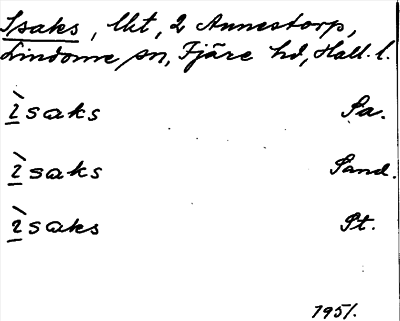 Isaks, lht, 2 Annestorp,
Lindome sn, Fjäre hd, Hall. l.
ìsaks Sa.
ìsaks Sand.
ìsaks St.
1951.